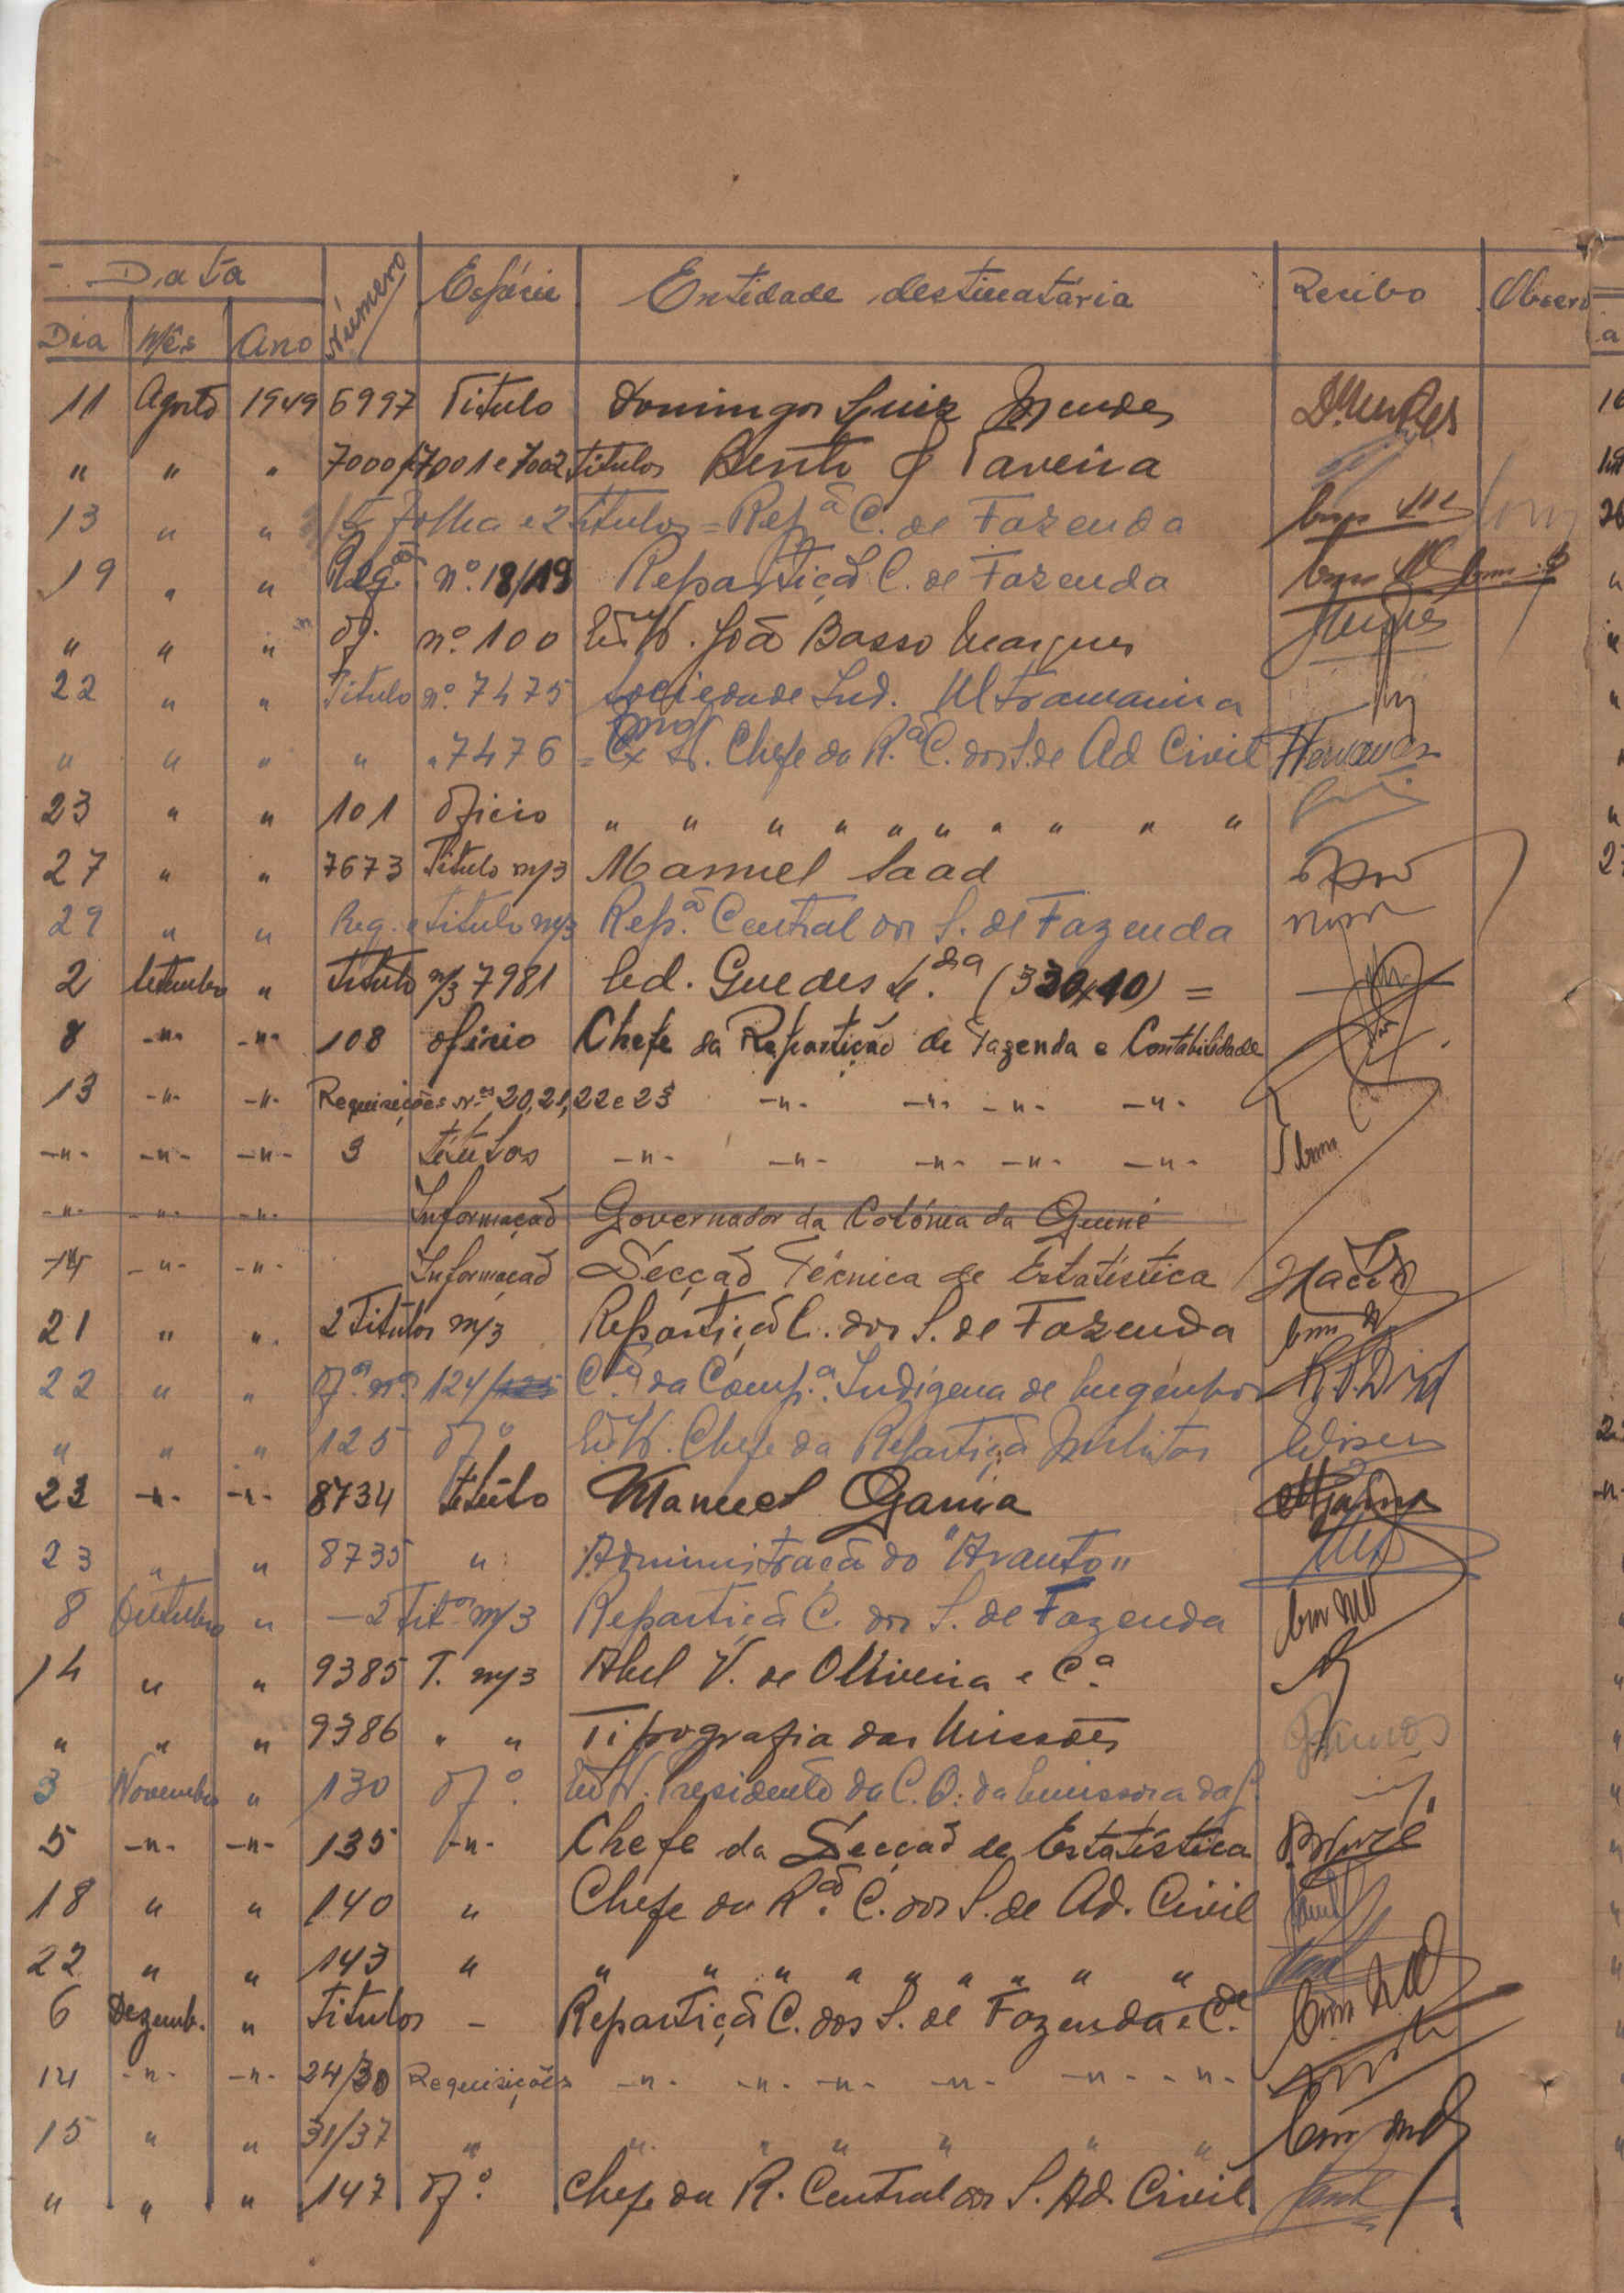 Data Número Espécie Entidade destinatária Recibo Observ
Dia Mês Ano
11 Agosto 1949 6997 Titulo Domingos Luiz Mendes DMendes
" " " 7000/7001 e 7002 Titulos Bento & Taveira
13 " " folha e 2 titulos = Rep.ª C. de Fazenda
19 " " Reqº nº. 18/19 Repartiçã C. de Fazenda
" " " Of. nº. 100 Joã Basso Marques
22 " " Titulo nº. 7475 Sociedade Ind. Ultramarina
" " " " " 7476 = Exmº Sr. Chefe da R.ª C. dos S. de Ad Civil
23 " " 101 Oficio " " " " " " " " " "
27 " " 7673 Titulo m/3 Manuel Saad
29 " " Req. e titulo m/3 Rep.ª Central dos S. de Fazenda
2 Setembro " Titulo m/3 7981 Ed. Guedes L.da (330,40) =
8 -"- -"- 108 ofício Chefe da Repartição de Fazenda e Contabilidade
13 -"- -"- Requisições Nºs 20, 21, 22 e 23 -"- -"- -"- -"-
-"- -"- -"- 3 títulos -"- -"- -"- -"- -"-
-"- -"- -"- Informaçaõ Governador da Colónia da Guiné
14 -"- -"- Informaçaõ Secçaõ Técnica de Estatística
21 " " 2 Titulos m/3 Repartiçã C. dos S. de Fazenda
22 " " Of.º nº. 124/125 C.te da Comp.ª Indigena de Engenhos
" " " 125 Of.º Chefe da Repartiçã Militar
23 -"- -"- 8734 título Manuel Gama
23 " " 8735 " Administraçã do "Arauto"
8 Outubro " - 2 Tit.os m/3 Repartiçã C. dos S. de Fazenda
14 " " 9385 T. m/3 Abel V. de Oliveira e C.ª
" " " 9386 " " Tipografia das Missões
3 Novembro " 130 Of.º Presidente da C. O. da Emissora da
5 -"- -"- 135 -"- Chefe da Secçaõ de Estatística
18 " " 140 " Chefe da R.ão C. dos S. de Ad. Civil
22 " " 143 " " " " " " " " " "
6 Dezemb. " Titulos - Repartiçã C. dos S. de Fazenda e C.de
14 -"- -"- 24/30 Requisições -"- -"- -"- -"- -"- -"-
15 " " 31/37 " " " " " " "
" " " 147 Of.º Chefe da R. Central dos S. Ad. Civil